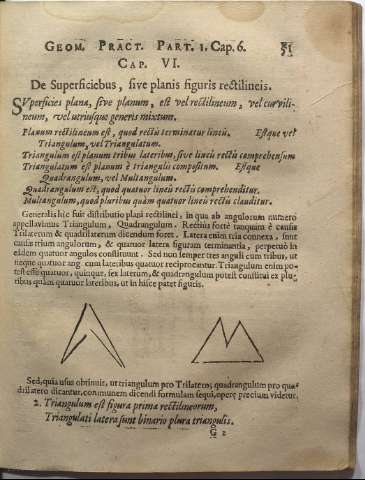 GEOM. PRACT. PART. 1. Cap. 6.
CAP. VI.
De Superficiebus, sive planis figuris rectilineis.
SVperficies plana, sive planum, est vel rectilineum, vel curvili-
neum, vel utriusque generis mixtum.
Planum rectilineum est, quod rectis terminatur lineis. Estque vel
Triangulum, vel Triangulatum.
Triangulum est planum tribus lateribus, sive lineis rectis comprehensum
Triangulatum est planum è triangulis compositum. Estque
Quadrangulum, vel Multangulum.
Quadrangulum est, quod quatuor lineis rectis comprehenditur.
Multangulum, quod pluribus quàm quatuor lineis rectis clauditur.
Generalis hîc fuit distributio plani rectilinei, in qua ab angulorum numero
appellavimus Triangulum, Quadrangulum. Rectius fortè tanquam è causis
Trilaterum & quadrilaterum dicendum foret. Latera enim tria connexa, sunt
causæ trium angulorum, & quatuor latera figuram terminantia, perpetuò in
eadem quatuor angulos constituunt. Sed non semper tres anguli cum tribus, ut
neque quatuor ang. cum lateribus quatuor reciprocantur. Triangulum enim po-
test esse quatuor, quinque, sex laterum, & quadrangulum potest constitui ex plu-
ribus quàm quatuor lateribus, ut in hisce patet figuris.
Sed, quia usus obtinuit, ut triangulum pro Trilatero; quadrangulum pro qua-
drilatero dicatur, communem dicendi formulam sequi, operę precium videtur.
2. Triangulum est figura prima rectilineorum,
Triangulati latera sunt binario plura triangulis.
G 2